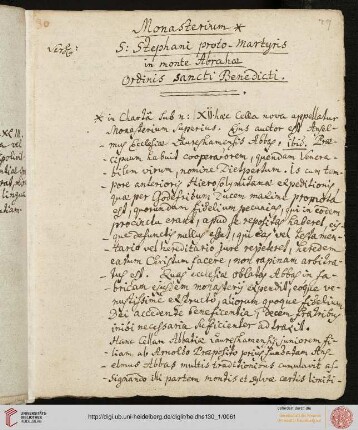 30
39
Monasterium *
S: Stephani proto-Martyris
in monte Abrahae
Ordinis Sancti Benedicti.
* in Charta sub n: XII haec Cella nova appellatur
Monasterium superius. Ejus auctor est Ansel-
mus Ecclesiae Laureshamensis Abbas, ibid. Prae-
cipuum habuit cooperatorem, quendam Venera-
bilem virum, nomine Dietpertum. Is cum tem-
pore anterioris Hierosolymitanae expeditionis
quae per Godefridum Ducem maxime promota
est, quorundam fidelium pecunias, qui in eodem
procinctu erant, apud se depositas haberet, eis-
que defunctis nullus esset, qui eas vel testamen-
tario vel hereditario jure repeteret, heredem
earum Christum facere, non rapinam arbitra-
tus est. Quas ecclesiae oblatas Abbas in fa-
bricam ejusdem monasterij expendit, eoque ve-
nustissime exstructo, aliorum quoque fidelium
Dei accedente beneficentia, decem fratribus
inibi necessaria sufficienter adtraxit.
Hanc Cellam Abbatiae Laureshamensis juniorem fi-
liam, ab Arnolto Praeposito prius fundatam Ans-
elmus Abbas multis traditionibus cumulavit as-
signando ibi partem montis et sylvae certis limiti-
http://digi.ub.uni-heidelberg.de/diglit/heidhs130_1/0061
UNIVERSITÄTS-BIBLIOTHEK HEIDELBERG